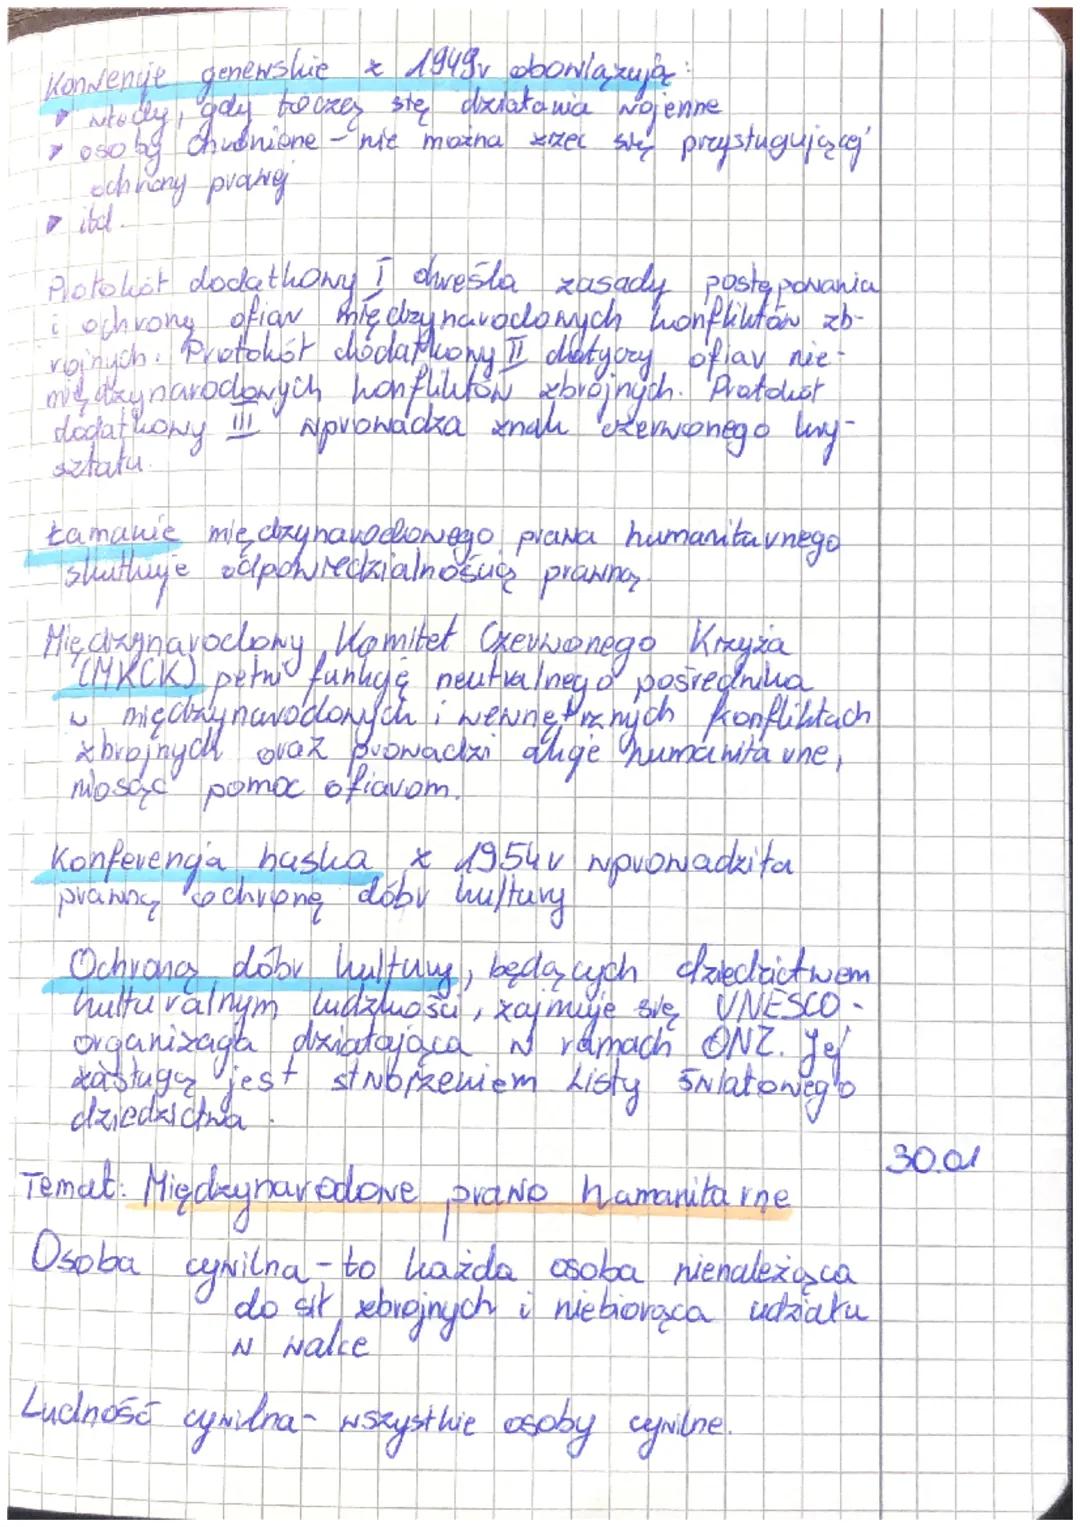 Konwencje genewskie z 1949r obowiązują:
wtedy, gdy toczą się działania wojenne
osoby chronione - nie można zrzec się przysługującej
ochrony prawej
itd.
Protokół dodatkowy I określa zasady postępowania
i ochronę ofiar międzynarodowych konfliktów zb-
rojnych. Protokół dodatkowy II dotyczy ofiar nie-
międzynarodowych konfliktów zbrojnych. Protokół
dodatkowy III wprowadza znak czerwonego kry-
ształu.
Łamanie międzynarodowego prawa humanitarnego
skutkuje odpowiedzialnością prawną.
Międzynarodowy Komitet Czerwonego Krzyża
(MKCK) pełni funkcję neutralnego pośrednika
w międzynarodowych i wewnętrznych konfliktach
zbrojnych oraz prowadzi akcje humanitarne,
niosąc pomoc ofiarom.
Konferencja haska z 1954r wprowadziła
prawną ochronę dóbr kultury
Ochroną dóbr kultury, będących dziedzictwem
kulturalnym ludzkości, zajmuje się UNESCO -
organizacja działająca w ramach ONZ. Jej
zasługą jest stworzeniem Listy światowego
dziedzictwa.
30.01
Temat: Międzynarodowe prawo humanitarne
Osoba cywilna - to każda osoba nienależąca
do sił zbrojnych i niebiorąca udziału
w walce
Ludność cywilna - wszystkie osoby cywilne.